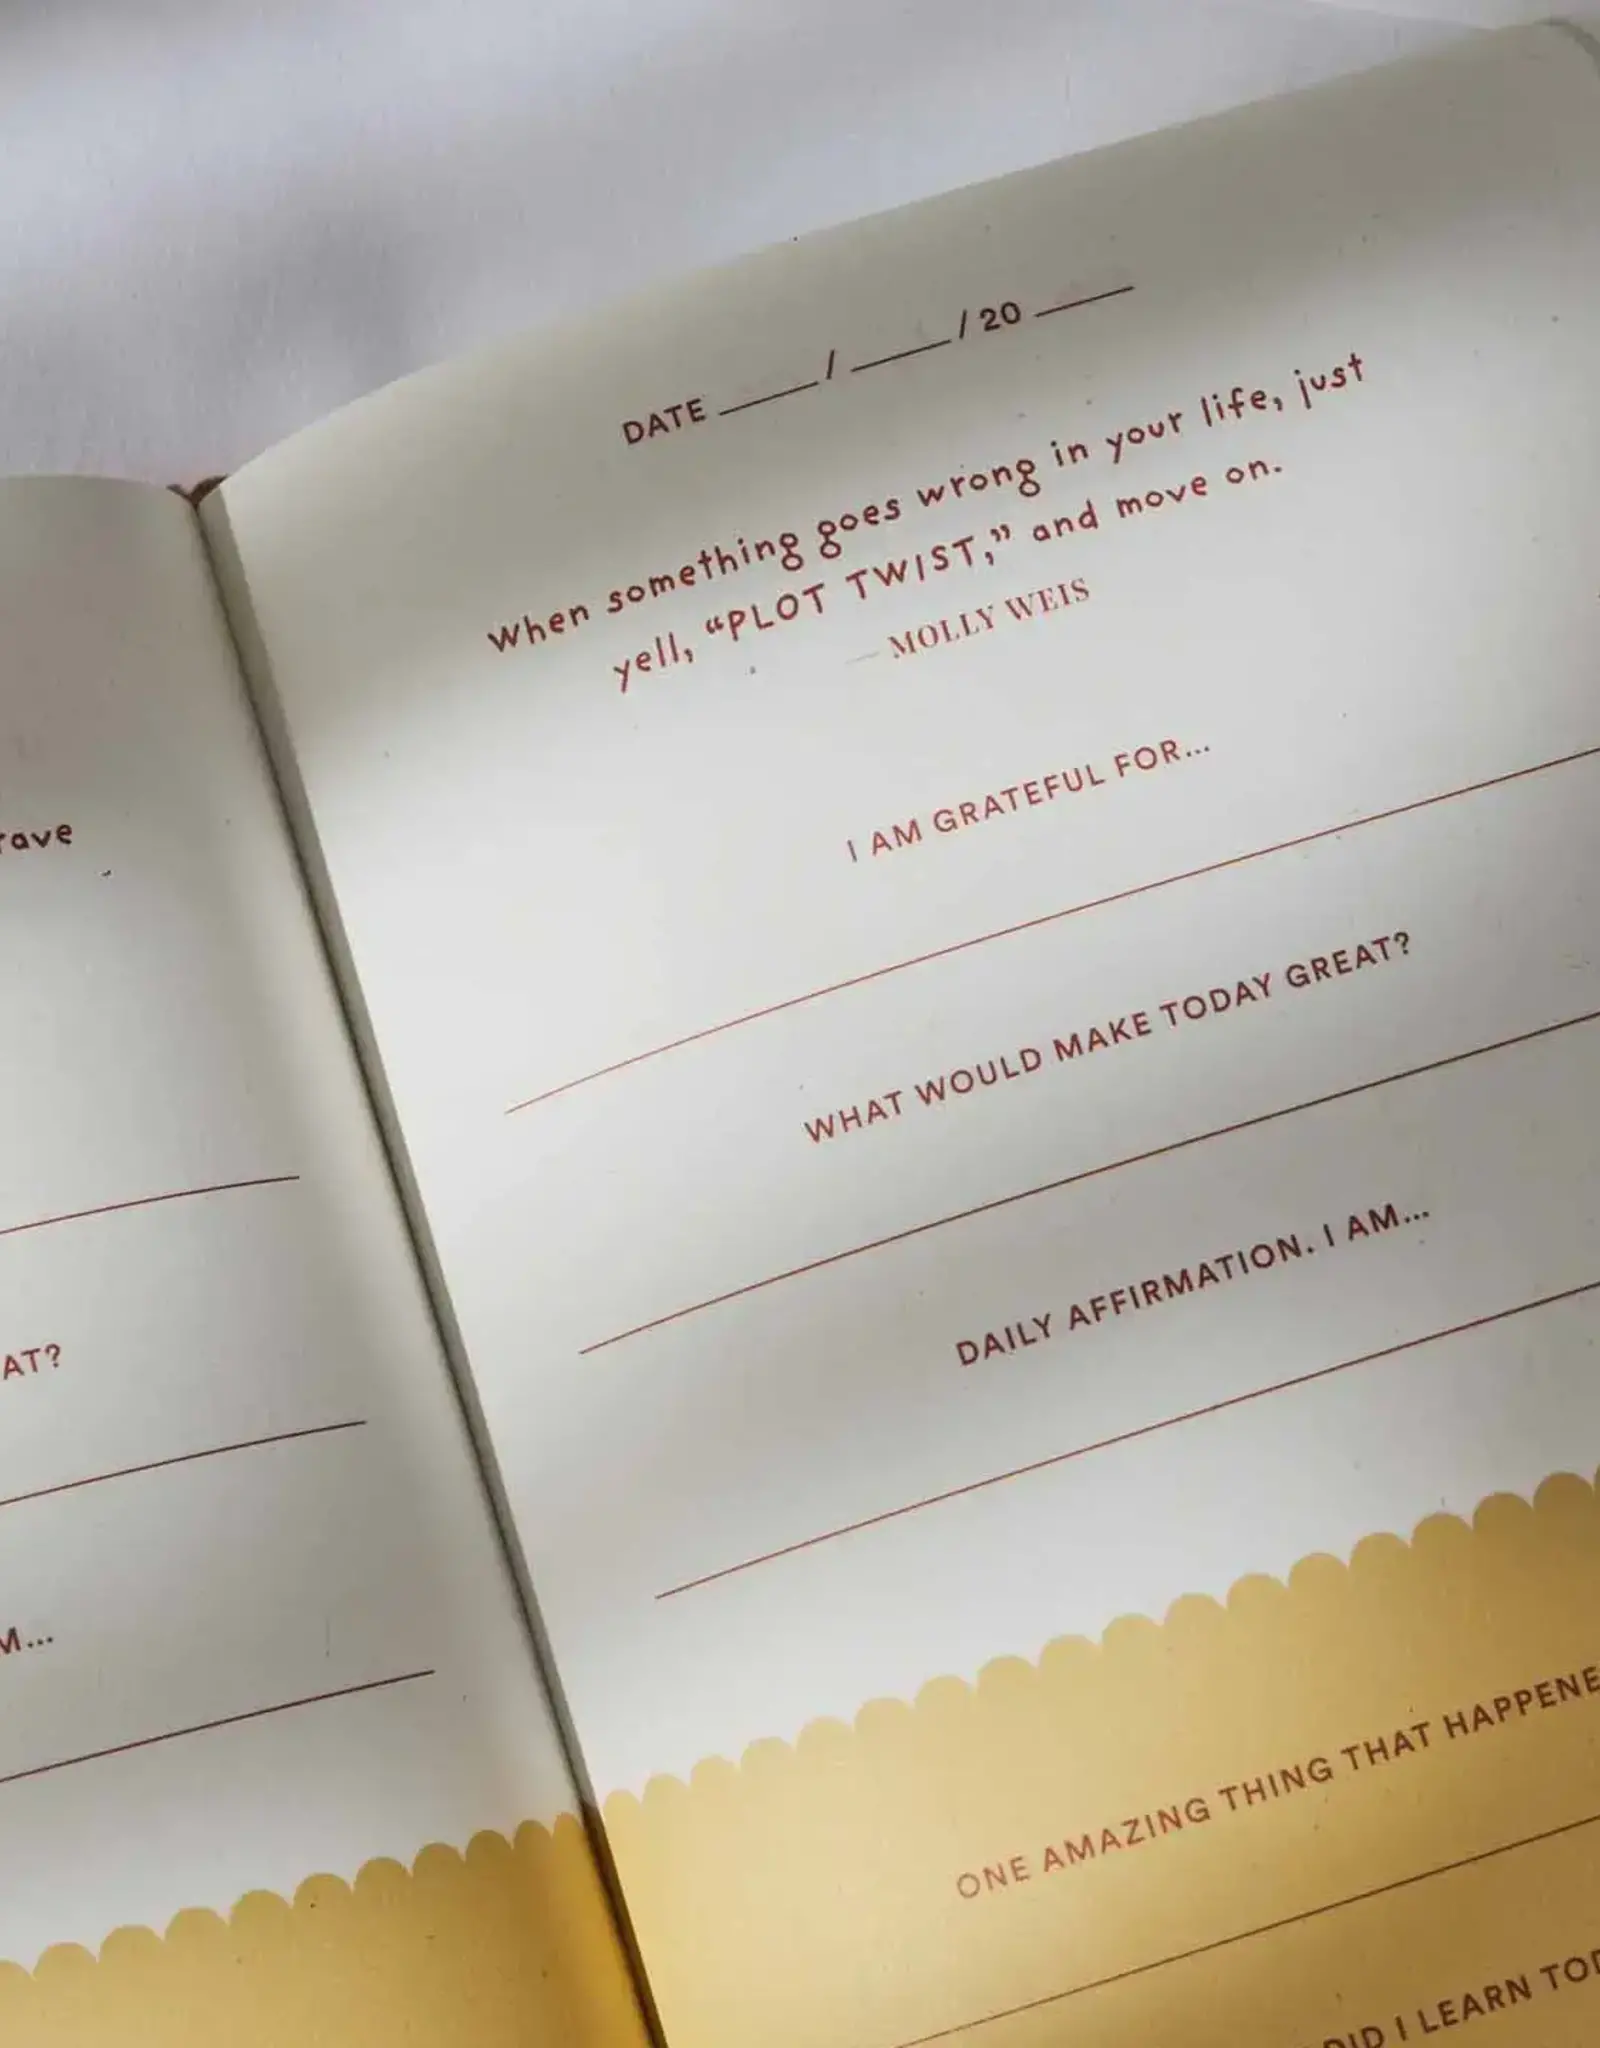 DATE ____ / ____ / 20 ____
When something goes wrong in your life, just
yell, “PLOT TWIST,” and move on.
— MOLLY WEIS
I AM GRATEFUL FOR...
WHAT WOULD MAKE TODAY GREAT?
DAILY AFFIRMATION. I AM...
ONE AMAZING THING THAT HAPPENE
DID I LEARN TOD